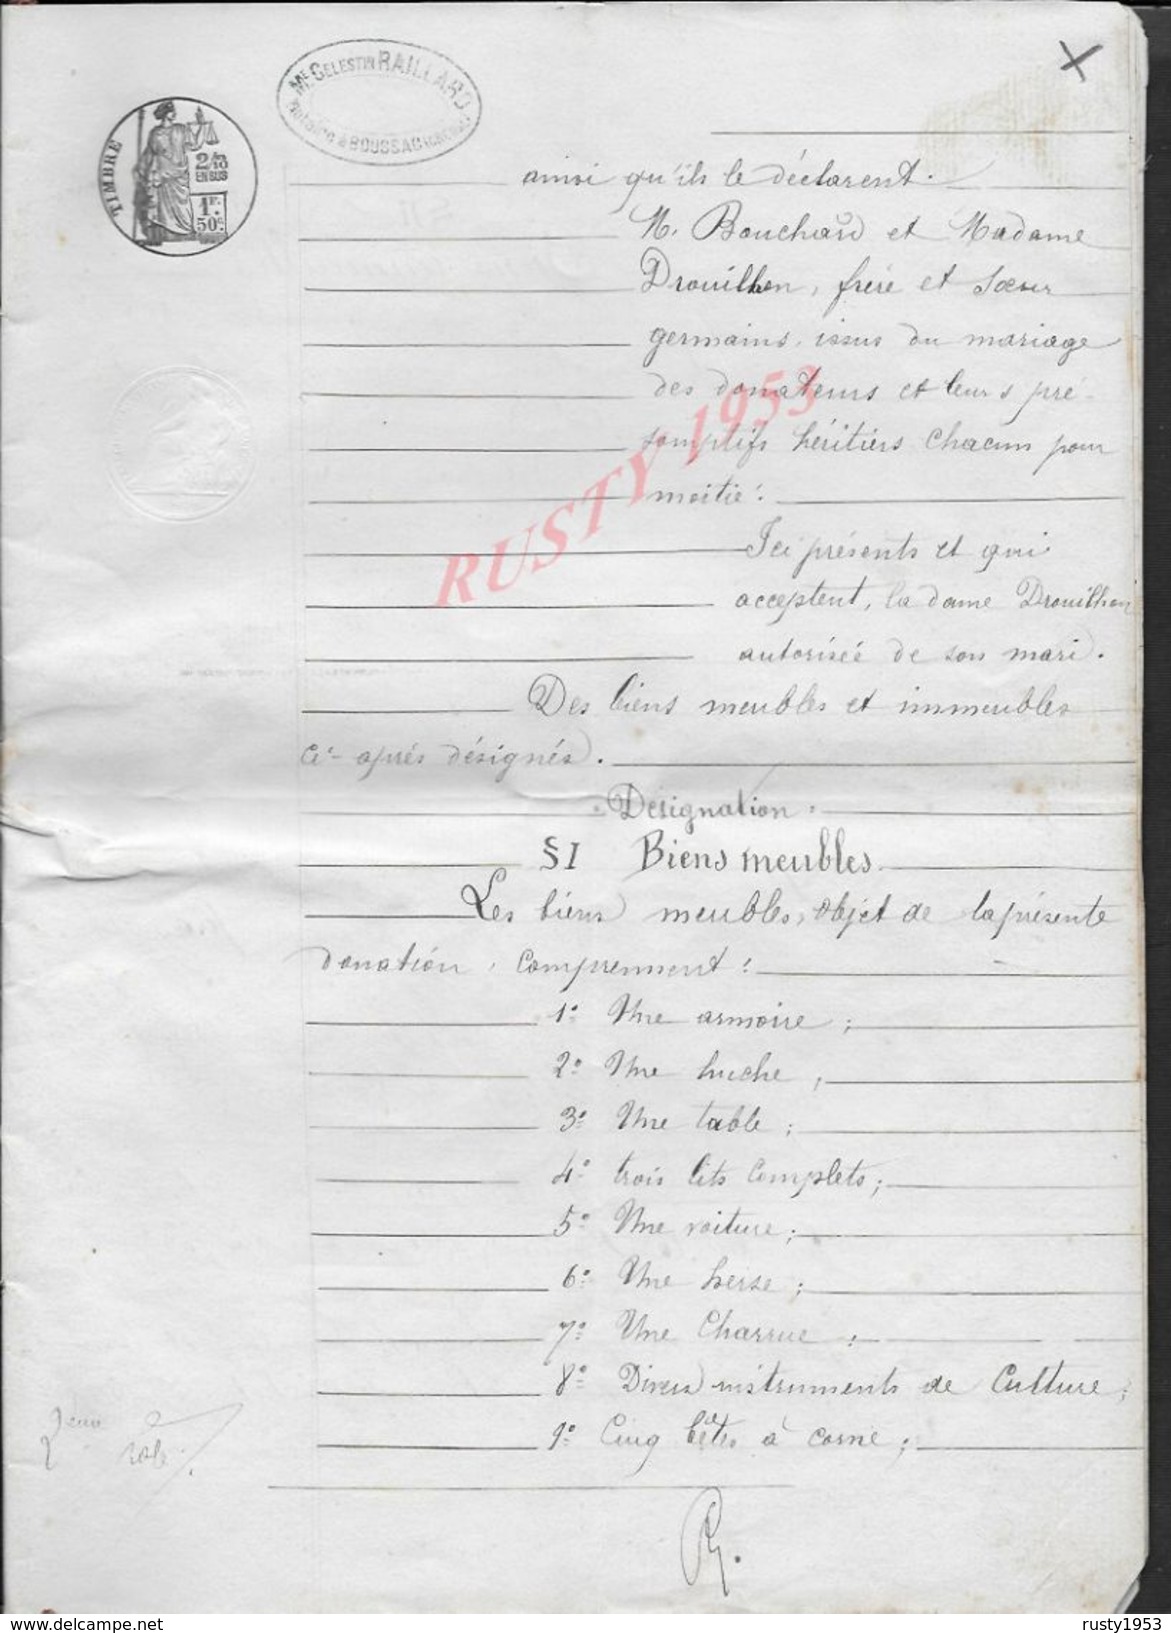 Me CELESTIN RAILLARD
Notaire à BOUSSAC (CREUSE)
TIMBRE
2/10
EN SUS
1F.
50c.
ainsi qu'ils le déclarent.
M. Bouchard et Madame
Drouilhon, frère et sœur
germains, issus du mariage
des donateurs et leurs pré-
somptifs héritiers chacun pour
moitié:
Ici présents et qui
acceptent, la dame Drouilhon
autorisée de son mari.
Des biens meubles et immeubles
ci-après désignés.
Désignation:
§ I Biens meubles.
Les biens meubles, objet de la présente
donation, comprennent:
1º Une armoire;
2º Une huche,
3º Une table;
4º trois lits complets;
5º Une voiture;
6º Une herse;
7º Une Charrue;
8º Divers instruments de Culture;
9º Cinq bêtes à corne;
2eme rôle.
RUSTY 1953
www.delcampe.net
rusty1953